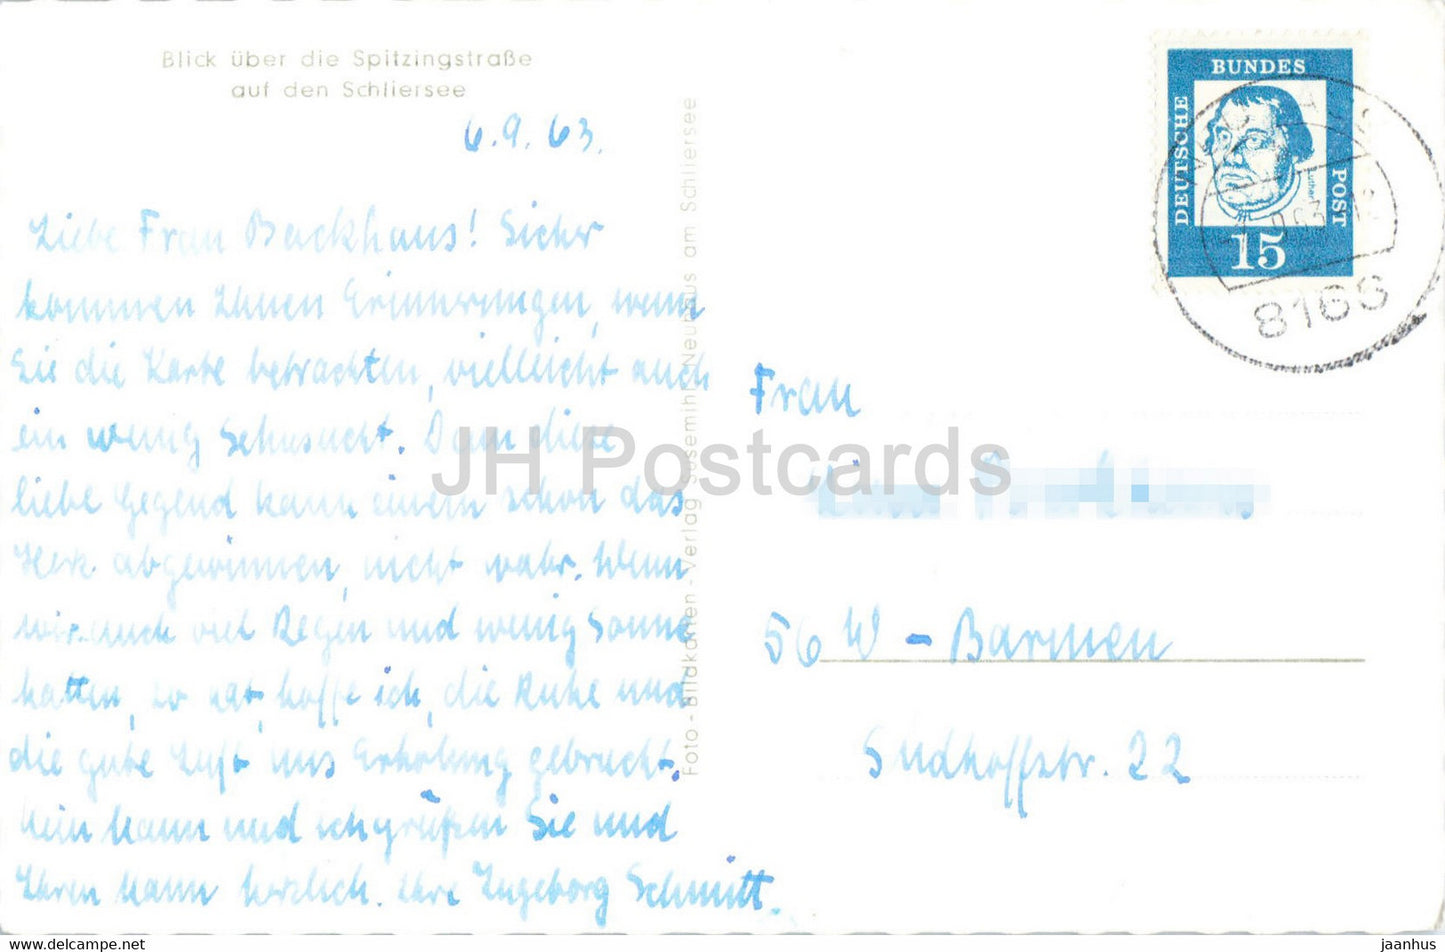 Blick über die Spitzingstraße
auf den Schliersee
6.9.63.
Liebe Frau Backhaus! Sicher
kommen Ihnen Erinnerungen, wenn
Sie die Karte betrachten, vielleicht auch
ein wenig Sehnsucht. Denn diese
liebe Gegend kann einem schon das
Herz abgewinnen, nicht wahr. Wenn
wir auch viel Regen und wenig Sonne
hatten, so hat, hoffe ich, die Ruhe und
die gute Luft uns Erholung gebracht.
Mein Mann und ich grüßen Sie und
Ihren Mann herzlich. Ihre Ingeborg Schmitt.
Foto-Bildkarten-Verlag Susemihl Neuhaus am Schliersee
DEUTSCHE
BUNDES
POST
Luther
15
8166
Frau
56 W - Barmen
Südhoffstr. 22
JH Postcards
www.delcampe.net
jaanhus